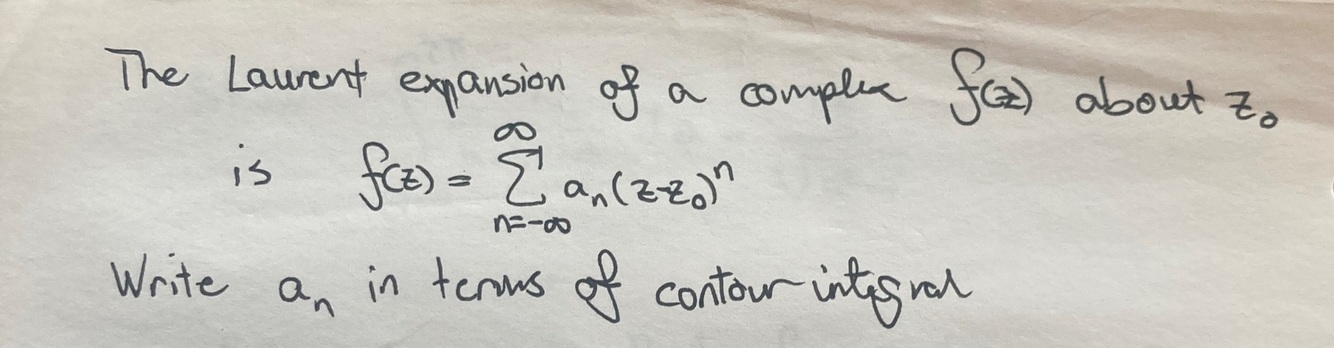 The Laurent expansion of a complex f(z) about z₀
is f(z) = ∑_{n=-∞}^{∞} aₙ(z-z₀)ⁿ
Write aₙ in terms of contour integral